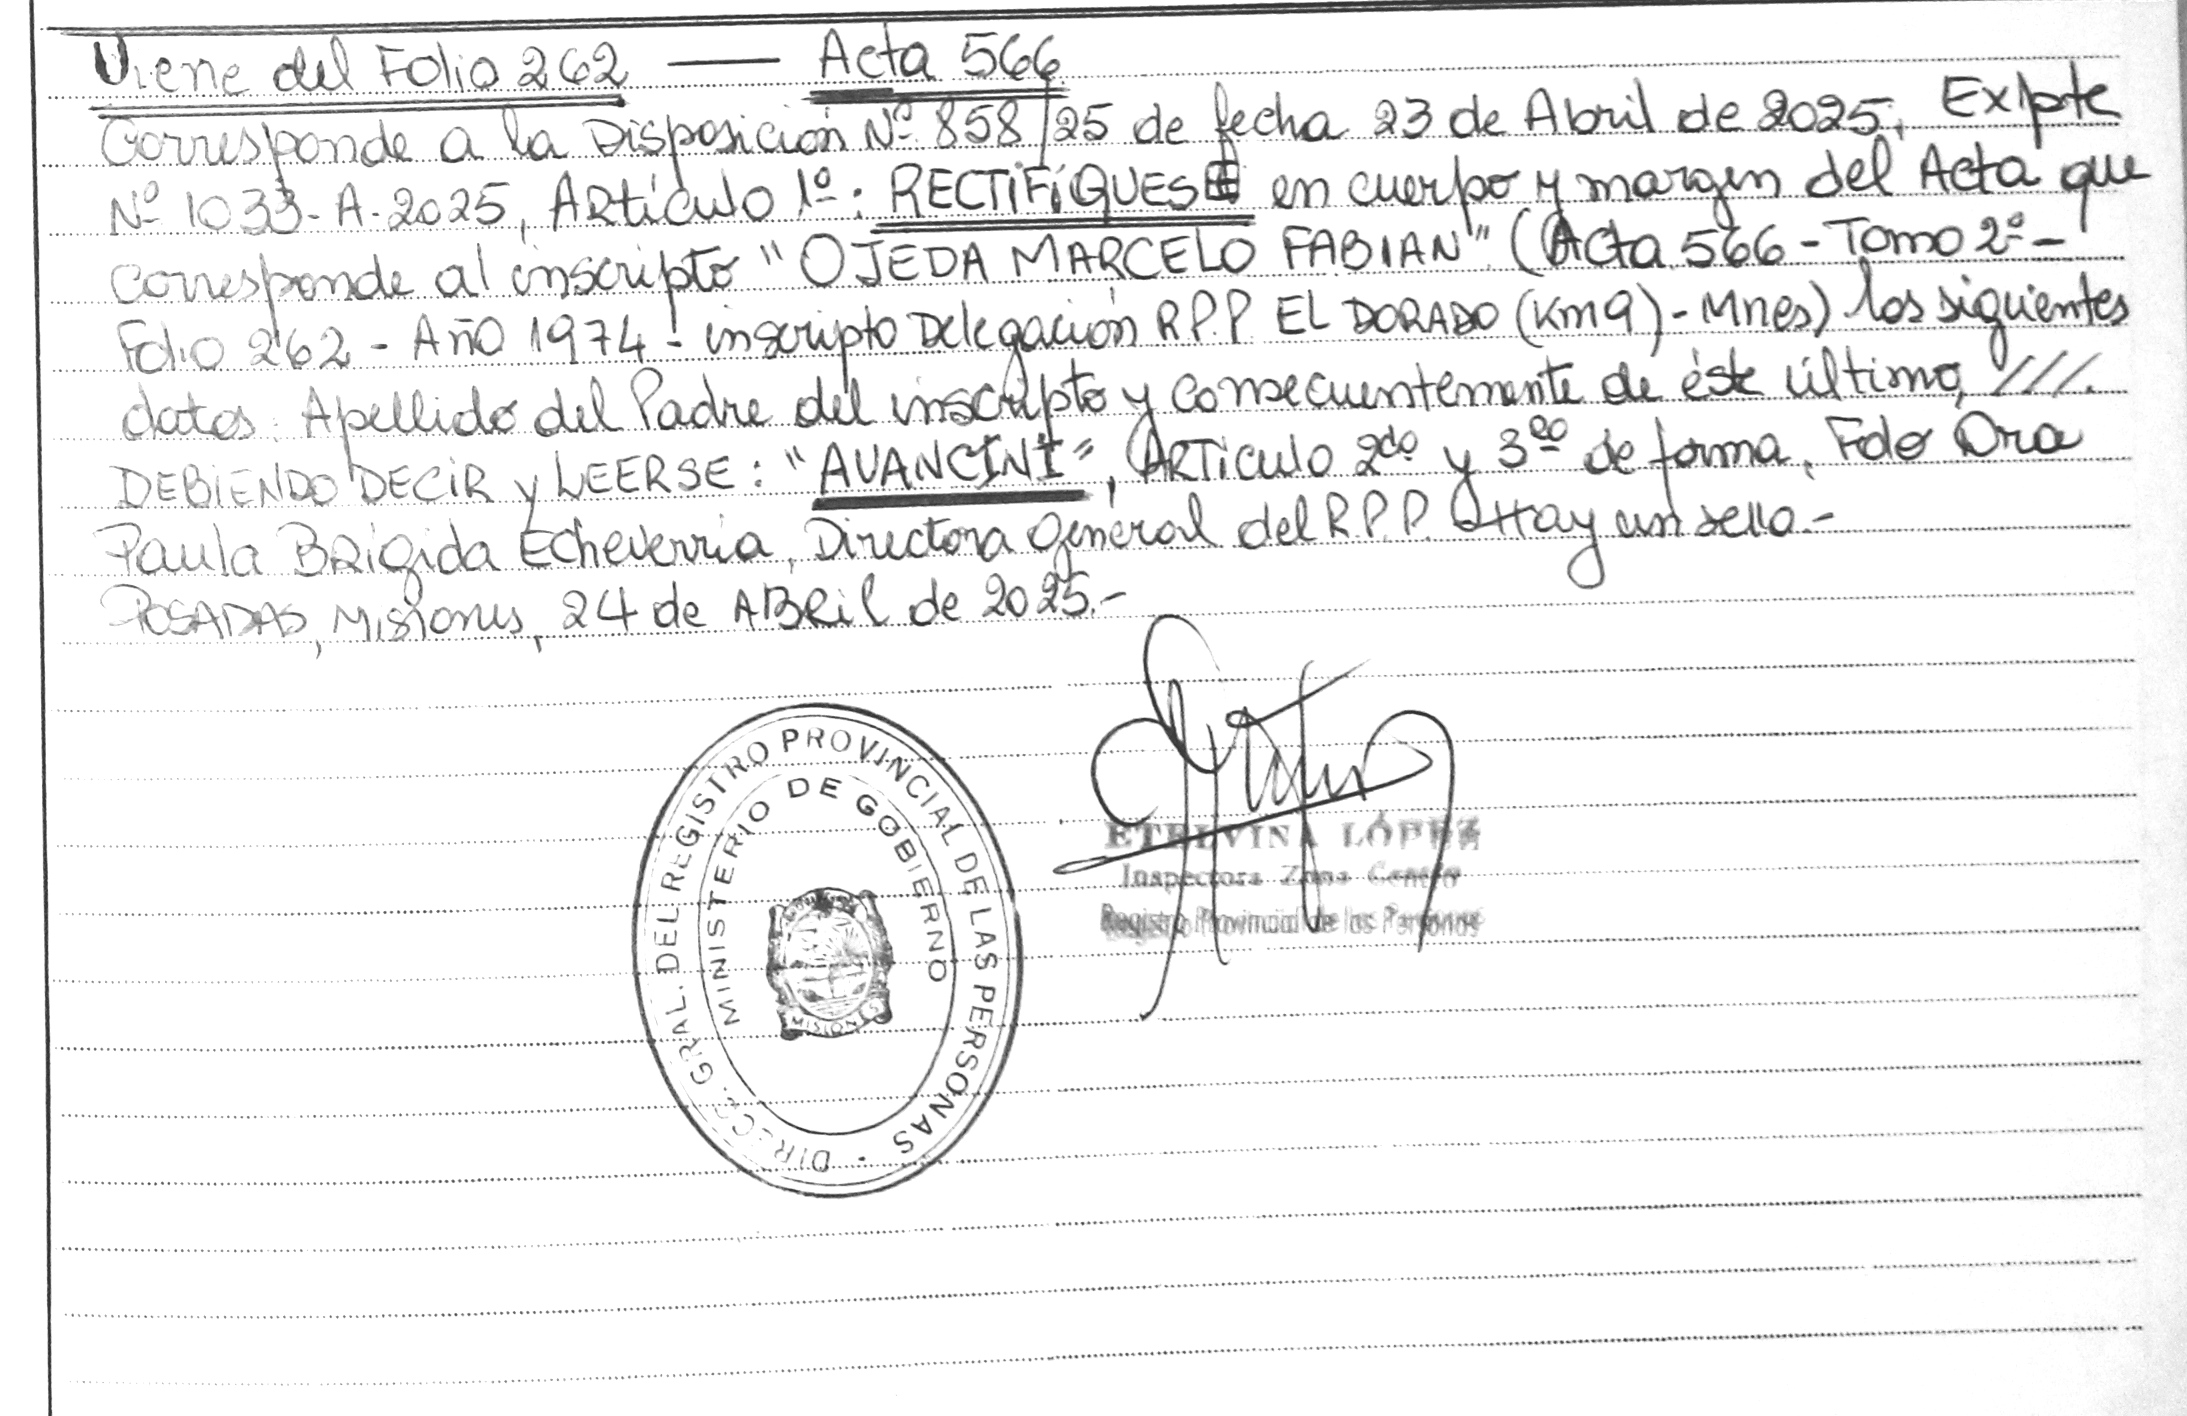 Viene del Folio 262 — Acta 566
Corresponde a la Disposición Nº 858/25 de fecha 23 de Abril de 2025, Expte
Nº 1033-A-2025, Artículo 1º: RECTIFÍQUESE en cuerpo y margen del Acta que
corresponde al inscripto "OJEDA MARCELO FABIAN" (Acta 566 - Tomo 2º -
Folio 262 - Año 1974 - inscripto Delegación R.P.P. EL DORADO (Km 9) - Mnes) los siguientes
datos: Apellido del Padre del inscripto y consecuentemente de éste último, ///.
DEBIENDO DECIR y LEERSE: "AVANCINI", ARTículo 2do y 3ro de forma. Fdo Dra
Paula BRígida Echeverria, Directora General del R.P.P. Hay un sello.-
POSADAS, Misiones, 24 de ABRil de 2025.-
DIRECC. GRAL. DEL REGISTRO PROVINCIAL DE LAS PERSONAS
MINISTERIO DE GOBIERNO
MISIONES
ETELVINA LÓPEZ
Inspectora Zona Centro
Registro Provincial de las Personas